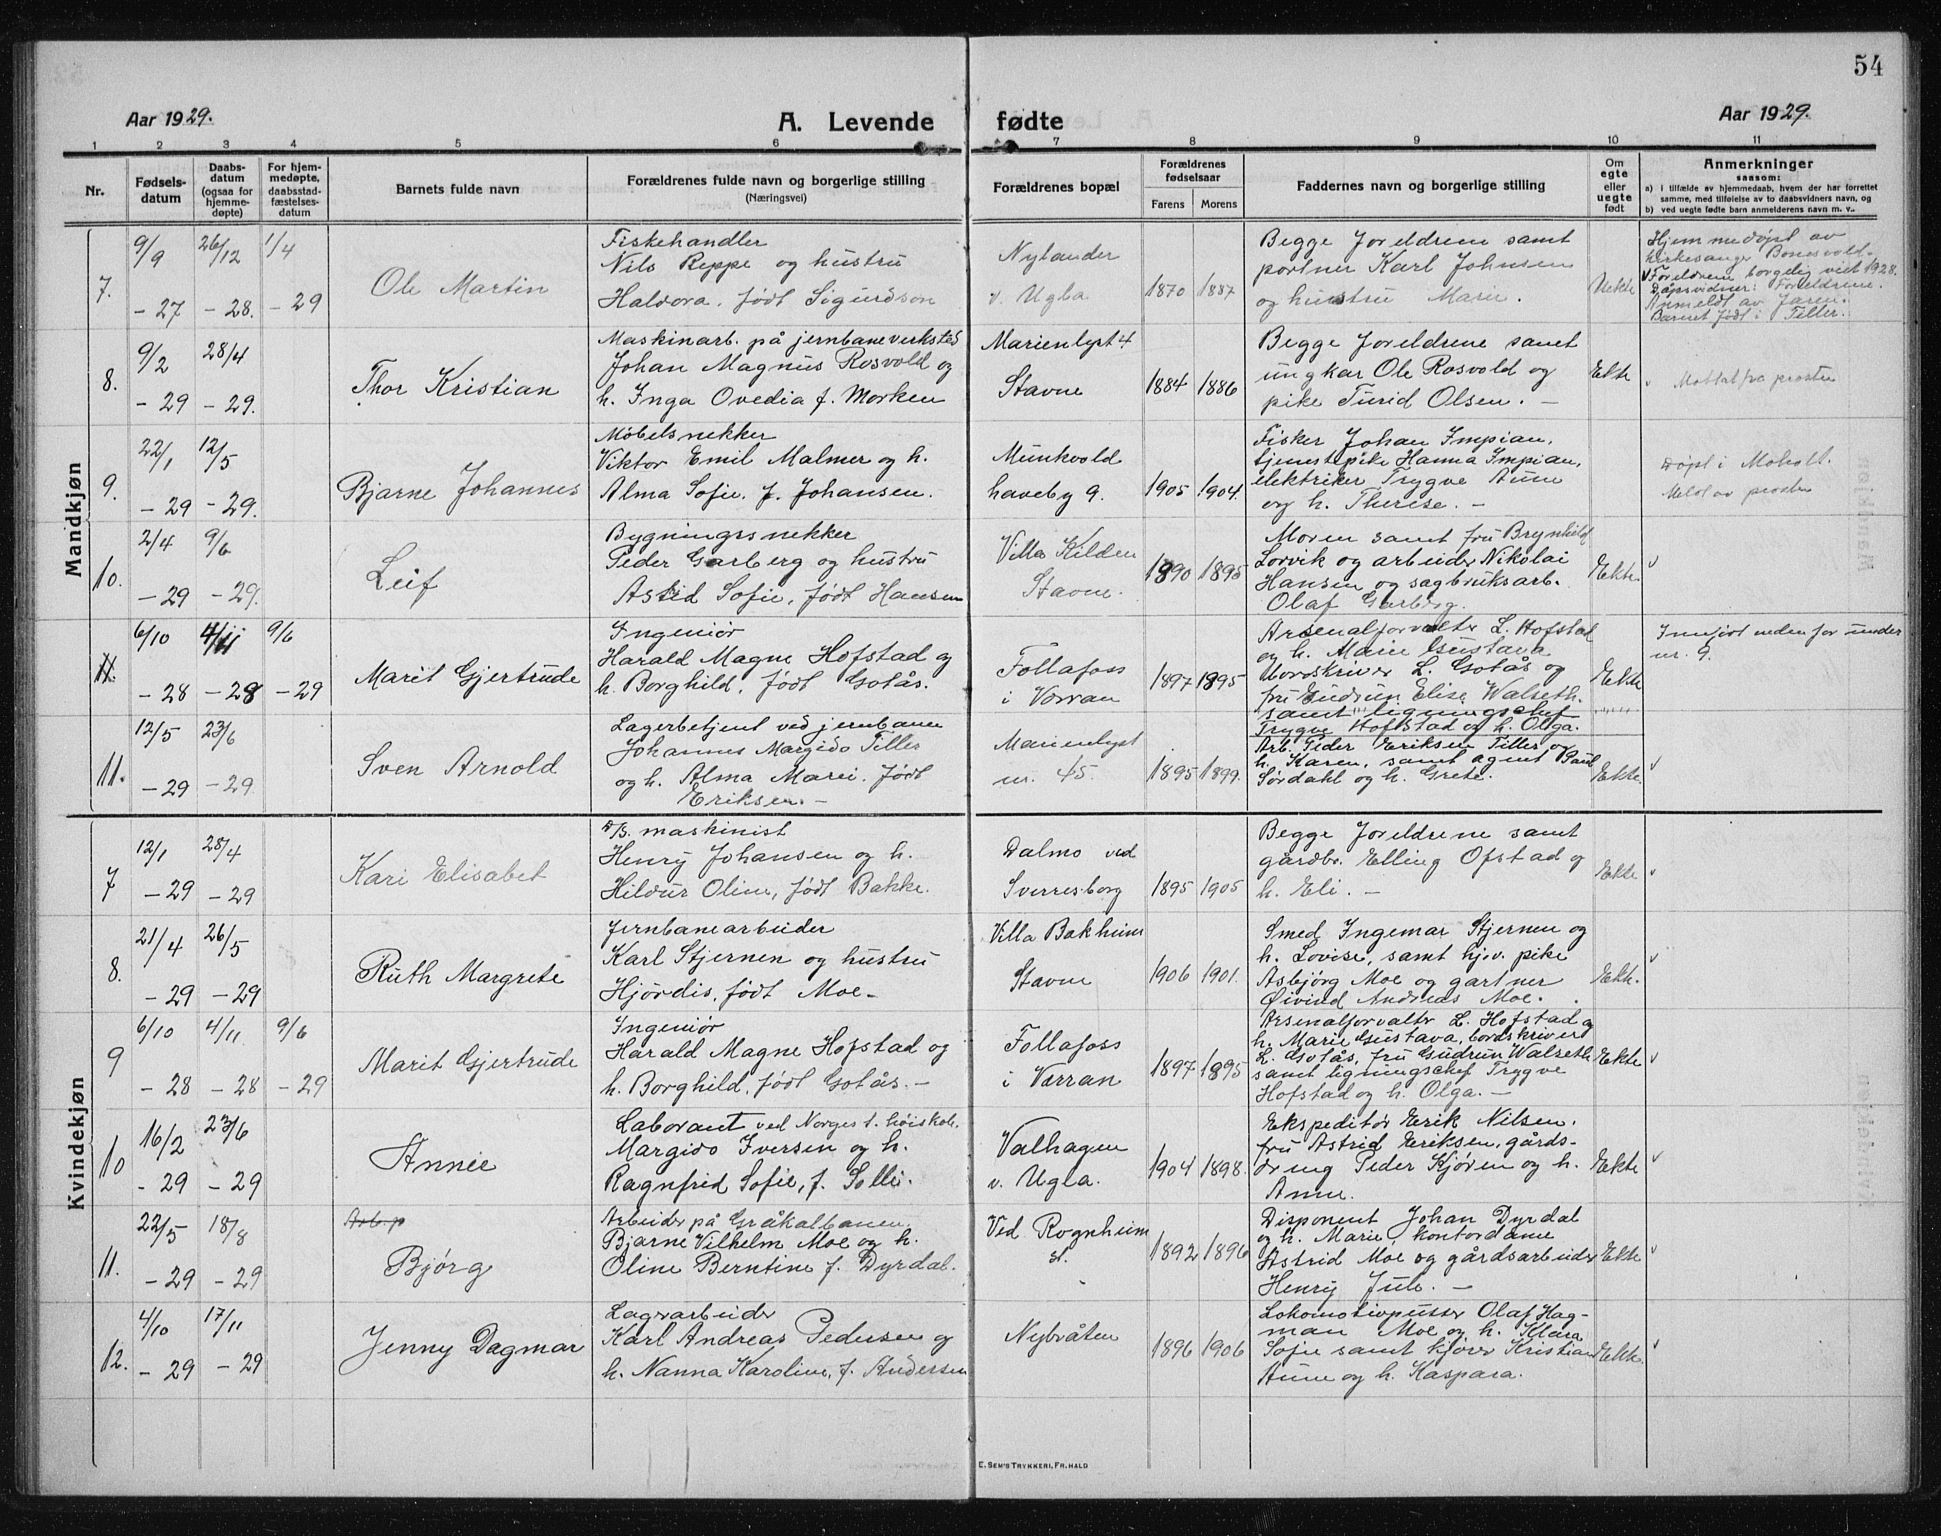 54
Aar 1929.
A. Levende fødte
Aar 1929.
1 2 3 4 5 6 7 8 9 10 11
Nr.
Fødsels-
datum
Daabs-
datum
(ogsaa for
hjemme-
døpte)
For hjem-
medøpte,
daabsstad-
fæstelses-
datum
Barnets fulde navn
Forældrenes fulde navn og borgerlige stilling
(Næringsvei)
Forældrenes bopæl
Forældrenes
fødselsaar
Farens Morens
Faddernes navn og borgerlige stilling
Om
egte
eller
uegte
født
Anmerkninger
saasom:
a) i tilfælde av hjemmedaab, hvem der har forrettet
samme, med tilføielse av to daabsvidners navn, og
b) ved uegte fødte barn anmelderens navn m. v.
Mandkjøn
7.
9/9
- 27
26/12
- 28.
1/4
- 29
Ole Martin
Fiskehandler
Nils Reppe og hustru
Haldora, født Sigurdson
Nylander
v. Ugla
1870 1887
Begge foreldrene samt
portner Karl Johnsen
og hustru Marie.
Uekte
Hjemmedøpt av
kirkesanger Bonesvold.
Foreldrene borgelig viet 1928.
Dåpsvidner: Foreldrene.
Anmeldt av faren.
Barnet født i Tiller.
8.
9/2
- 29
28/4
- 29.
Thor Kristian
Maskinarb. på jernbaneverksted
Johan Magnus Rosvold og
h. Inga Ovedia f. Morken
Marienlyst 4
Stavne
1884 1886
Begge foreldrene samt
ungkar Ole Rosvold og
pike Turid Olsen. -
Ekte
v Mottat fra prosten
9.
22/1
- 29
12/5
- 29.
Bjarne Johannes
Møbelsnekker
Viktor Emil Malmer og h.
Alma Sofie, f. Johansen.
Munkvold
haveby 9.
1905 1904.
Fisker Johan Impian,
tjenestepike Hanna Impian,
elektriker Trygve Aune
og h. Therese. -
Døpt i Moholt.
Meld av prosten
10.
2/4
- 29
9/6
- 29.
Leif
Bygningssnekker
Peder Garberg og hustru
Astrid Sofie, født Hansen
Villa Kilden
Stavne.
1890 1895
Moren samt fru Brynhild
Lorvik og arbeider Nikolai
Hansen og sagbruksarb.
Olaf Garberg.
Ekte.
v
11.
6/10
- 28
4/11
- 28
9/6
- 29
Marit Gjertrude
Ingeniør
Harald Magne Hofstad og
h. Borghild, født Gotås.
Follafoss
i Verran
1897 1895
Arsenalforvalter L. Hofstad
og h. Marie Gustava
bordskriver L. Gotås og
fru Gudrun Elise Walseth.
samt ligningschef
Trygve Hofstad og h. Olga.
Ekte
Innført nedenfor under
nr. 9.
11.
12/5
- 29
23/6
- 29.
Sven Arnold
Lagerbetjent ved jernbanen
Johannes Margido Tiller
og h. Alma Marie. født
Eriksen. -
Marienlyst
nr. 45.
1895 1899.
Arb. Peder Eriksen Tiller og
h. Karen, samt agent Paul
Sørdahl og h. Grete.
Ekte.
v
Kvindekjøn
7
12/1
- 29
28/4
- 29
Kari Elisabet
D/S. maskinist
Henry Johansen og h.
Hildur Oline, født Bakke.
Dalmo ved
Sverresborg
1895 1905
Begge foreldrene samt
gårdbr. Elling Ofstad og
h. Eli. -
Ekte
v
8.
21/4
- 29
26/5
- 29
Ruth Margrete
Jernbanearbeider
Karl Stjernen og hustru
Hjørdis, født Moe -
Villa Bakheim
Stavne
1906 1901.
Smed Ingemar Stjernen og
h. Lovise, samt hjv. pike
Asbjørg Moe og gartner
Øivind Andreas Moe.
Ekte.
v
9
6/10
- 28
4/11
- 28
9/6
- 29
Marit Gjertrude
Ingeniør
Harald Magne Hofstad og
h. Borghild, født Gotås. -
Follafoss
i Verran
1897 1895
Arsenalforvalter L. Hofstad og
h. Marie Gustava, bordskriver
L. Gotås, fru Gudrun Walseth
samt ligningschef Trygve
Hofstad og h. Olga. -
Ekte
v
10
16/2
- 29
23/6
- 29
Annie
Laborant ved Norges t. høiskole.
Margido Iversen og h.
Ragnfrid Sofie, f. Solli.
Valhagen
v. Ugla.
1904 1898.
Ekspeditør Erik Nilsen.
fru Astrid Eriksen, gårds-
dreng Peder Kjøren og h.
Anne.
Ekte
v
11.
22/5
- 29
18/8
- 29
Arb. p
Bjørg
Arbeider på Gråkalbanen.
Bjarne Vilhelm Moe og h.
Oline Berntine f. Dyrdal.
Ved Rognheim
st.
1892 1896
Disponent Johan Dyrdal
og h. Marie, kontordame
Astrid Moe og gårdsarbeider
Henry Jule. -
Ekte
v
12.
4/10
- 29
17/11
- 29
Jenny Dagmar
Lagerarbeider
Karl Andreas Pedersen og
h. Nanna Karoline, f. Andersen
Nybråten
1896 1906
Lokomotivpusser Olaf Hag-
man Moe og h. Klara
Sofie samt kjører Kristian
Aune og h. Kaspara.
Ekte.
v
E. SEM'S TRYKKERI, FR. HALD